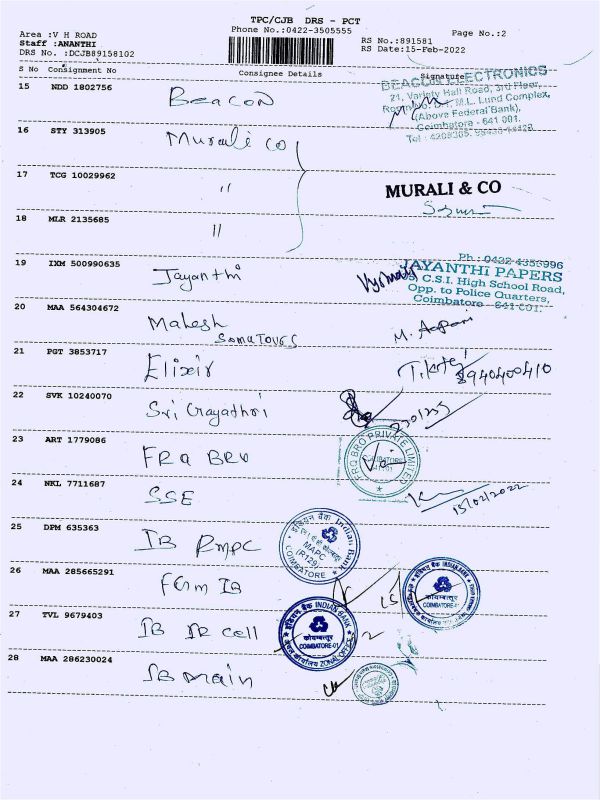 TPC/CJB DRS - PCT
Area :V H ROAD
Phone No.:0422-3505555
Page No.:2
Staff :ANANTHI
RS No.:891581
DRS No. :DCJB89158102
RS Date:15-Feb-2022
S No Consignment No Consignee Details Signature
15 NDD 1802756 Beacon
BEACON ELECTRONICS
21, Variety Hall Road, 3rd Floor,
M.L. Lund Complex,
(Above Federal Bank),
Coimbatore - 641 001.
16 STY 313905 Murali co
17 TCG 10029962 "
MURALI & CO
18 MLR 2135685 "
19 IXM 500990635 Jayanthi
Ph : 0422-4353996
JAYANTHI PAPERS
C.S.I. High School Road,
Opp. to Police Quarters,
Coimbatore - 641 001.
20 MAA 564304672 Mahesh
21 PGT 3853717 Elixir
8940400410
22 SVK 10240070 Sri Gayathri
23 ART 1779086 FRQ BRO
FRQ BRO PRIVATE LIMITED
24 NKL 7711687 SSE
15/02/2022
25 DPM 635363 IB RMPC
इंडियन बैंक Indian Bank
MAPC
(R129)
COIMBATORE
26 MAA 285665291 FGMO IB
इंडियन बैंक INDIAN BANK
कोयम्बत्तूर
COIMBATORE-01
27 TVL 9679403 IB IR cell
इंडियन बैंक INDIAN BANK
कोयम्बत्तूर
COIMBATORE-01
ZONAL OFFICE
28 MAA 286230024 IB main